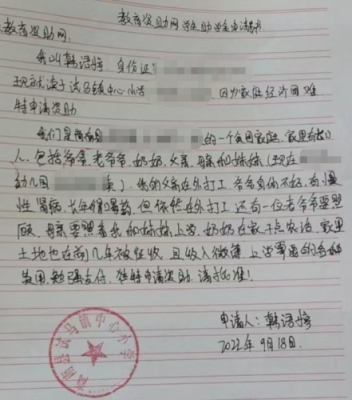 教育资助网学生助学金申请书
教育资助网:
我叫韩语婷 身份证
现就读于试马镇中心小学 因为家庭经济困难
特申请资助
我们是商南县 的一个贫困家庭, 家里有
人, 包括爷爷, 老爷爷, 奶奶, 父亲, 母亲和妹妹(现在
幼儿园 读) 我的父亲在外打工 爷爷身体不好, 有慢
性胃病, 长年服胃药, 但依然在外打工 还有一位老爷爷要照
顾, 母亲要照看我和妹妹上学, 奶奶在家干点农活, 家里
土地也在前几年被征收 且收入微薄, 上学需要的各种
费用, 勉强支付, 特申请资助 请予批准!
申请人: 韩语婷
2022年9月18日
商南县试马镇中心小学